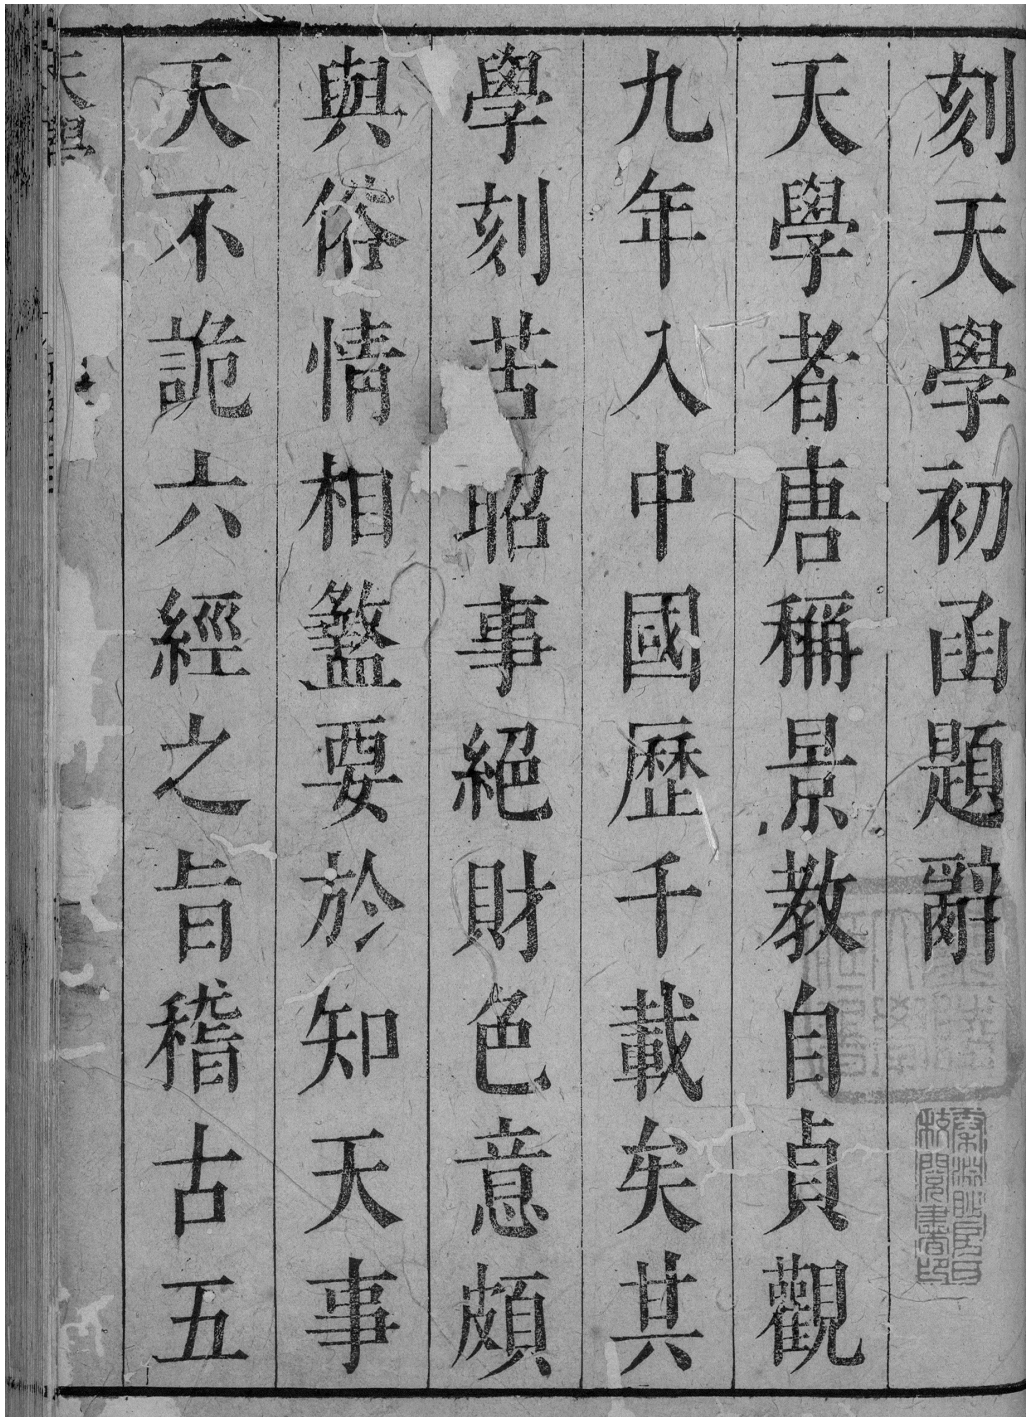 刻天學初函題辭
天學者唐稱景教自貞觀
九年入中國歷千載矣其
學刻苦昭事絕財色意頗
與俗情相盭要於知天事
天不詭六經之旨稽古五
天學